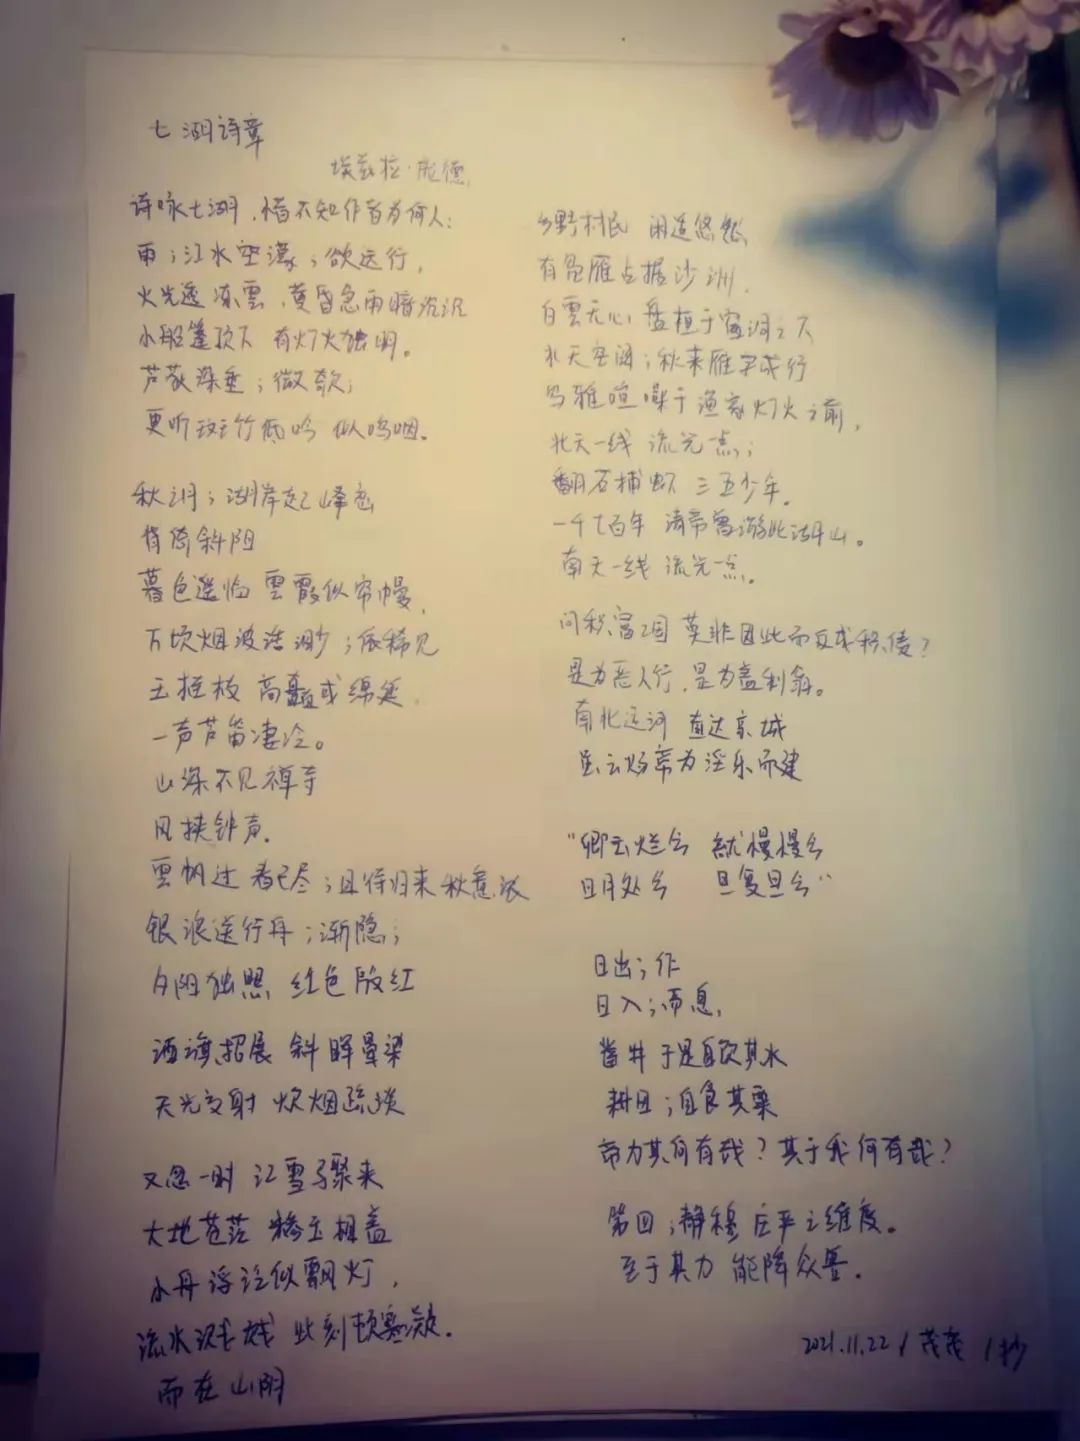 七湖诗章
埃兹拉·庞德
诗咏七湖，惜不知作者为何人：
雨；江水空濛；欲远行，
火光透冻雲，黄昏急雨暗沉沉
小船篷顶下 有灯火独明。
芦荻深垂；微欹；
更听 竹低吟 似呜咽。
秋洲；湖岸起峰峦
背倚斜阳
暮色遥临 雲霞似帘幔，
万顷烟波浩渺；依稀见
玉桂枝 高矗或绵延
一声芦笛凄冷。
山深不见禅寺
风挟钟声。
雲帆过 春已尽；且待归来秋意浓
银浪送行舟；渐隐；
夕阳独照 红色殷红
酒旗招展 斜晖晕染
天光交射 炊烟疏淡
又忽一时 江雪骤来
大地苍茫 琼玉相盖
小舟浮泛似飘灯，
流水 此刻顿寒凝。
而在山阴
乡野村民 闲适悠然
有凫雁占据沙洲，
白雲无心 盘桓于窗洞之下
水天空阔；秋来雁字成行
乌雅喧噪于渔家灯火之前，
北天一线 流光一点；
翻石捕虾 三五少年。
一千七百年 清帝曾游此湖山。
南天一线 流光一点。
问积富之国 莫非因此而反成积债？
是为恶人行，是为盖利翁。
南北运河 直达京城
虽云炀帝为淫乐而建
“卿云烂兮 糺慢慢兮
日月处兮 旦复旦兮”
日出；作
日入；而息，
凿井 于是自饮其水
耕田；自食其粟
帝力其何有哉？其于我何有哉？
第四；静穆 庄平之维度。
至于其力 能降众兽。
2021.11.22 / 茂茂 / 抄